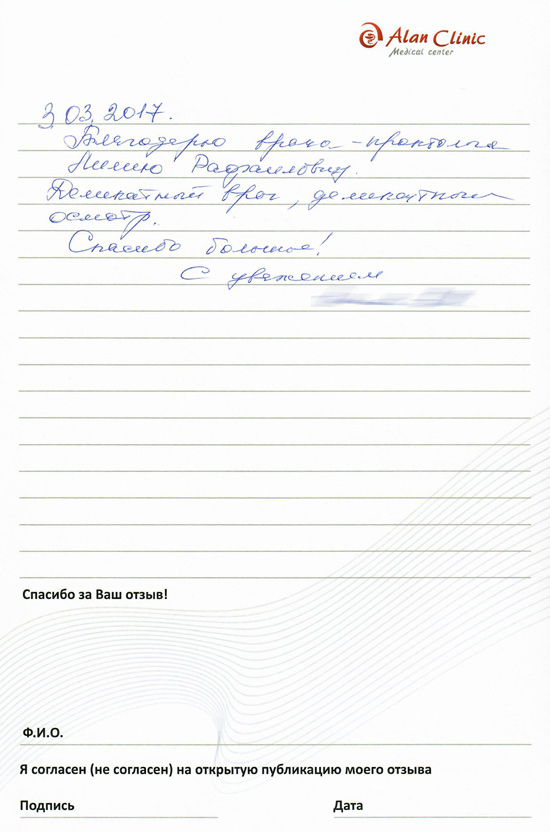 Alan Clinic
Medical center
3 03. 2017.
Благодарю врача-проктолога
Лилию
Деликатный врач, деликатный
осмотр.
Спасибо большое!
С уважением
Спасибо за Ваш отзыв!
Ф.И.О.
Я согласен (не согласен) на открытую публикацию моего отзыва
Подпись Дата